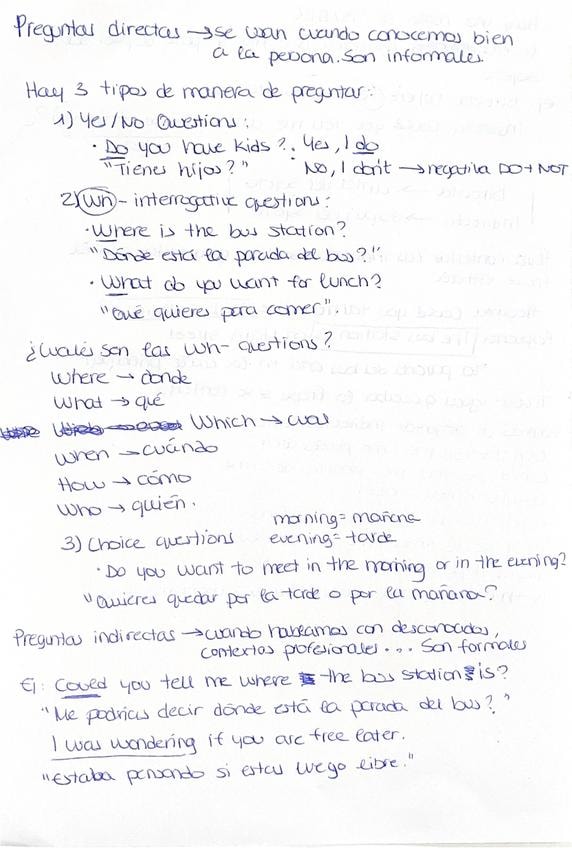 Preguntas directas → se usan cuando conocemos bien
a la persona. Son informales.
Hay 3 tipos de manera de preguntar:
1) Yes/No Questions:
· Do you have kids? : Yes, I do
"Tienes hijos?" No, I don't → negativa DO + NOT
2) Wh - interrogative questions:
· Where is the bus station?
"Dónde está la parada del bus?"
· What do you want for lunch?
"Qué quieres para comer".
¿Cuáles son las Wh- questions?
Where → donde
What → qué
Which → cual
When → cuándo
How → cómo
Who → quién.
morning = mañana
3) Choice questions evening = tarde
· Do you want to meet in the morning or in the evening?
"Quieres quedar por la tarde o por la mañana?
Preguntas indirectas → cuando hablamos con desconocidos,
contextos profesionales... Son formales
Ej: Could you tell me where the bus station is?
"Me podrías decir dónde está la parada del bus?"
I was wondering if you are free later.
"Estaba pensando si estas luego libre."